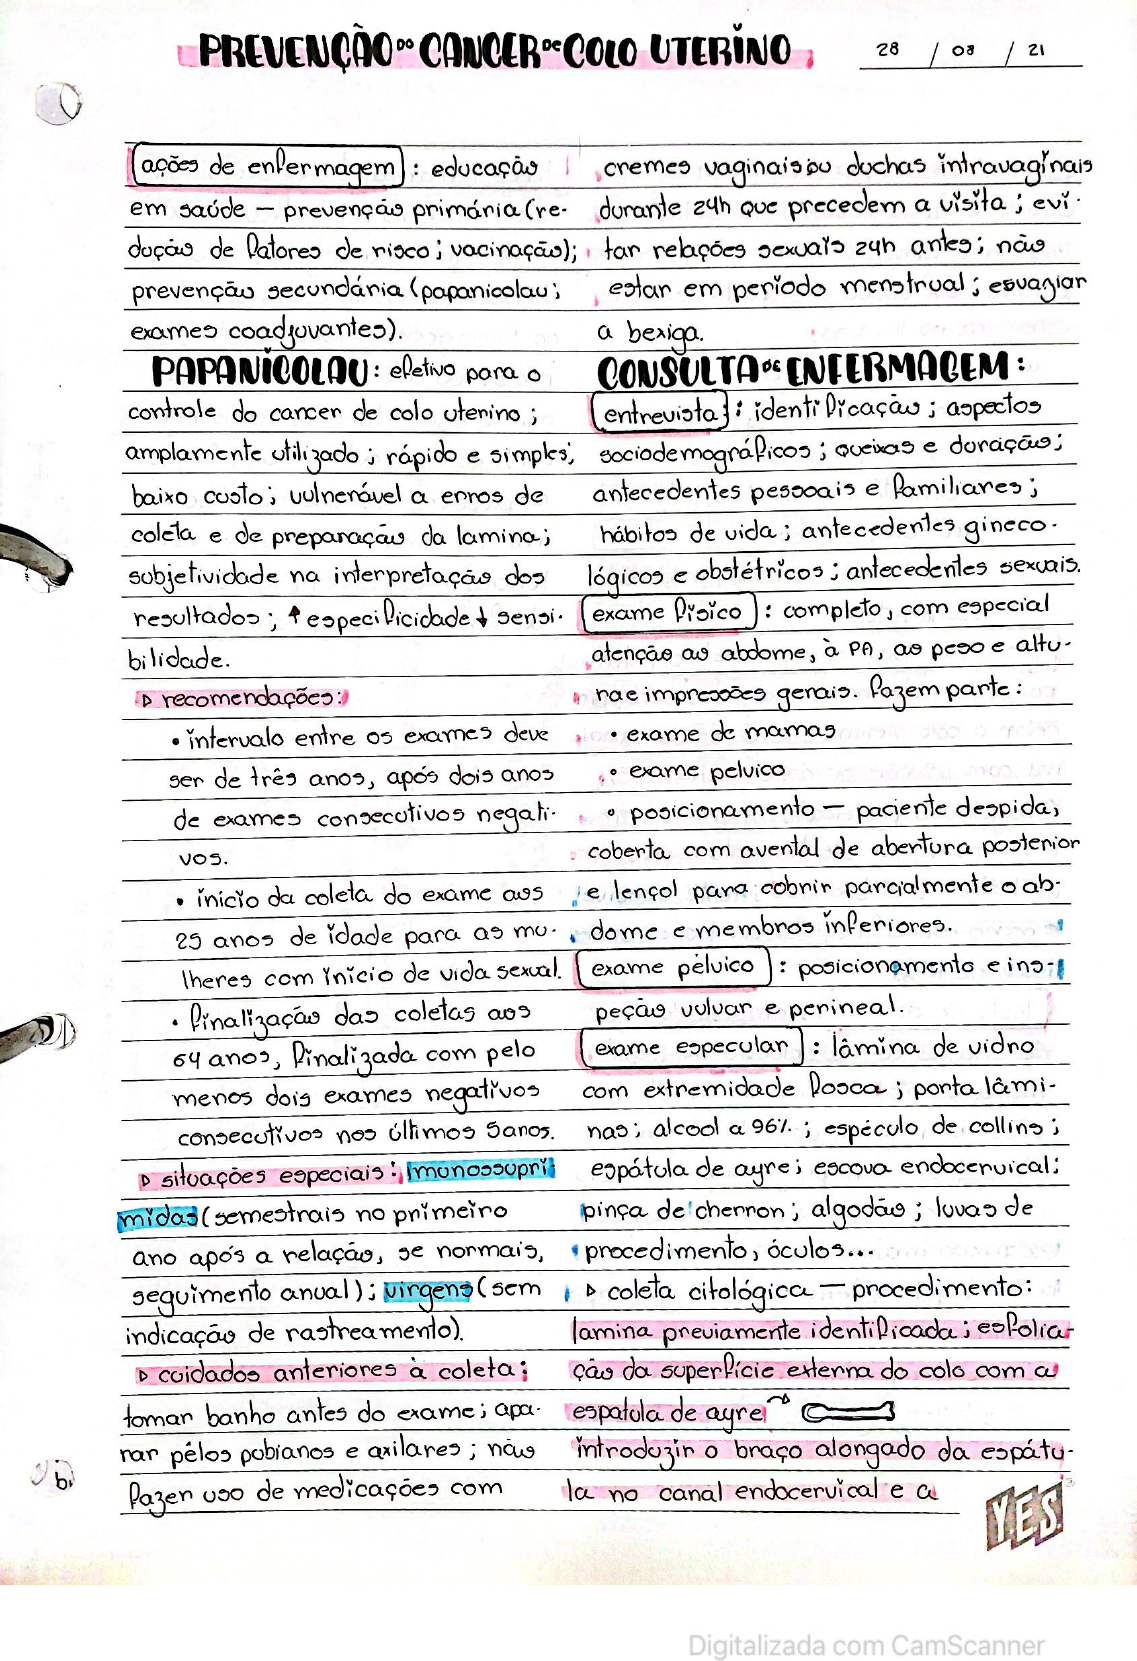 PREVENÇÃO DO CANCER DE COLO UTERINO
28 / 08 / 21
ações de enfermagem : educação
em saúde — prevenção primária (re-
dução de fatores de risco; vacinação);
prevenção secundária (papanicolau;
exames coadjuvantes).
PAPANICOLAU: efetivo para o
controle do cancer de colo uterino;
amplamente utilizado; rápido e simples;
baixo custo; vulnerável a erros de
coleta e de preparação da lamina;
subjetividade na interpretação dos
resultados; ↑ especificidade ↓ sensi-
bilidade.
▷ recomendações:
• intervalo entre os exames deve
ser de três anos, após dois anos
de exames consecutivos negati-
vos.
• início da coleta do exame aos
25 anos de idade para as mu-
lheres com início de vida sexual.
• finalização das coletas aos
64 anos, finalizada com pelo
menos dois exames negativos
consecutivos nos últimos 5 anos.
▷ situações especiais: imunossupri
midas (semestrais no primeiro
ano após a relação, se normais,
seguimento anual); virgens (sem
indicação de rastreamento).
▷ cuidados anteriores à coleta:
tomar banho antes do exame; apa-
rar pêlos pubianos e axilares; não
fazer uso de medicações com
cremes vaginais ou duchas intravaginais
durante 24h que precedem a visita; evi-
tar relações sexuais 24h antes; não
estar em período menstrual; esvaziar
a bexiga.
CONSULTA DE ENFERMAGEM:
entrevista : identificação; aspectos
sociodemográficos; queixas e duração;
antecedentes pessoais e familiares;
hábitos de vida; antecedentes gineco-
lógicos e obstétricos; antecedentes sexuais.
exame físico : completo, com especial
atenção ao abdome, à PA, ao peso e altu-
ra e impressões gerais. Fazem parte:
• exame de mamas
• exame pelvico
• posicionamento — paciente despida,
coberta com avental de abertura posterior
e lençol para cobrir parcialmente o ab-
dome e membros inferiores.
exame pélvico : posicionamento e ins-
peção vulvar e perineal.
exame especular : lâmina de vidro
com extremidade fosca; porta lâmi-
nas; alcool a 96%; espéculo de collins;
espátula de ayre; escova endocervical;
pinça de cherron; algodão; luvas de
procedimento, óculos...
▷ coleta citológica — procedimento:
lamina previamente identificada; esfolia-
ção da superfície externa do colo com a
espatula de ayre
introduzir o braço alongado da espátu-
la no canal endocervical e a
YES
b
Digitalizada com CamScanner